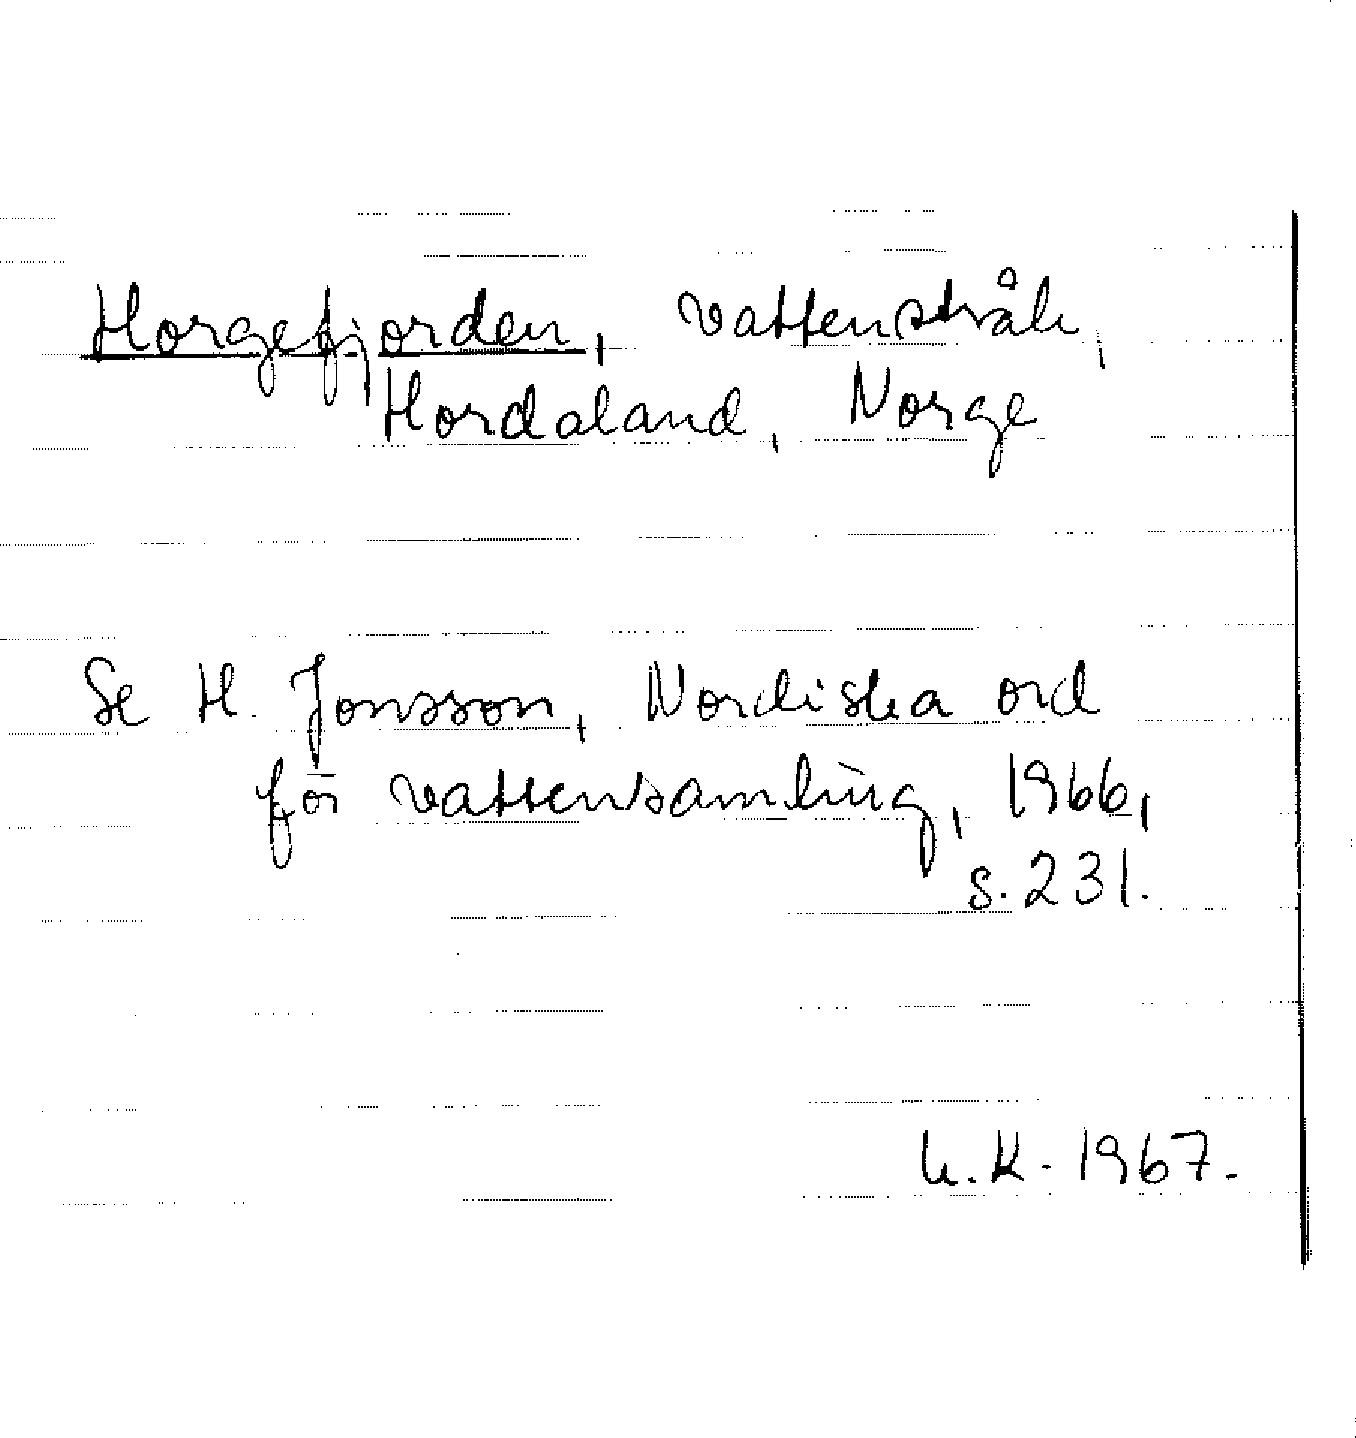 Horgefjorden, vattenstråk,
Hordaland, Norge
Se H. Jonsson, Nordiska ord
för vattensamling, 1966,
s. 231.
U.K. 1967.